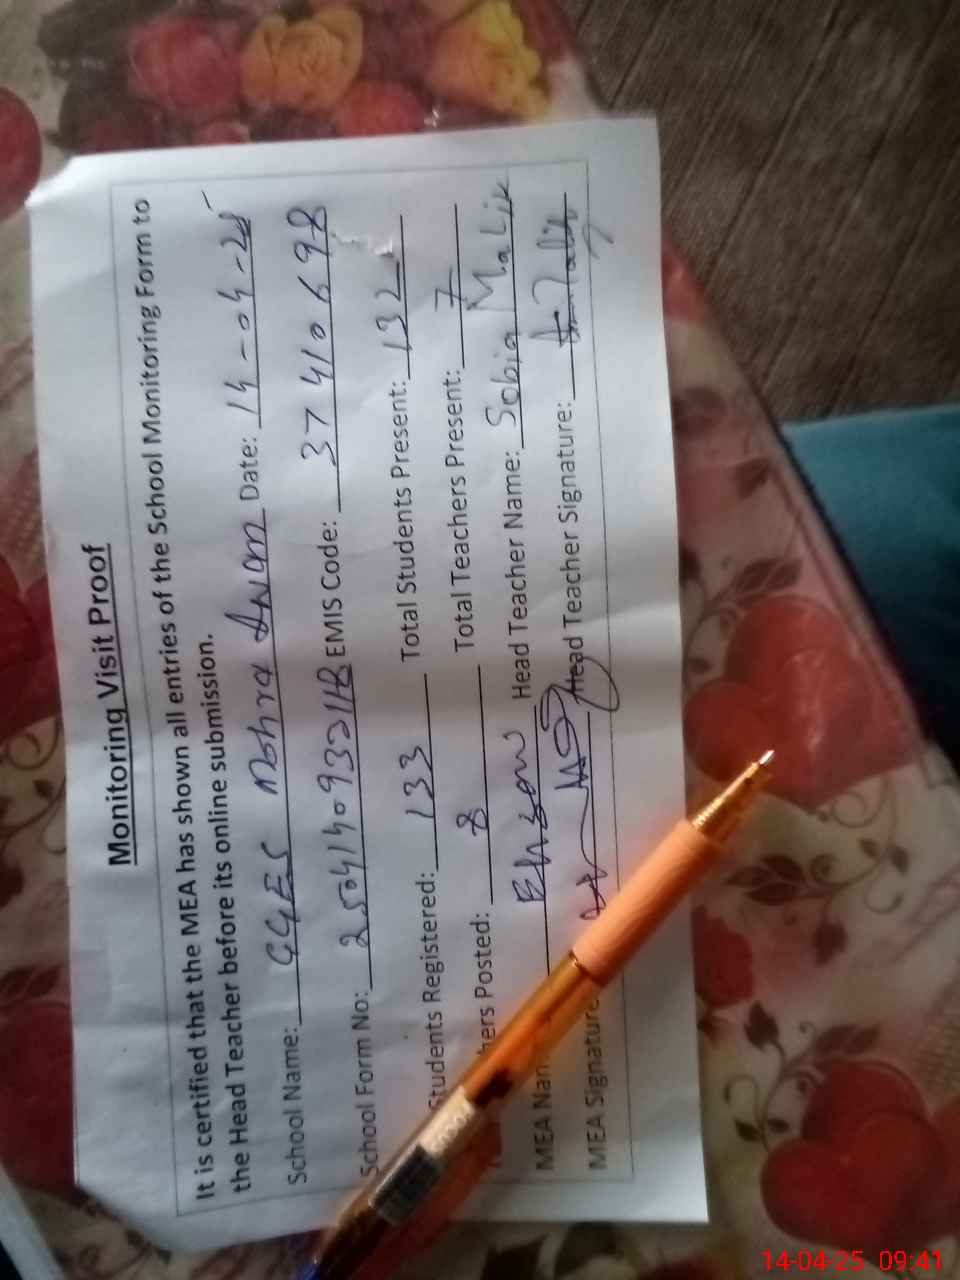 Monitoring Visit Proof
It is certified that the MEA has shown all entries of the School Monitoring Form to
the Head Teacher before its online submission.
School Name: GGES Mohra Anam Date: 14-04-25
School Form No: EMIS Code: 37410698
Students Registered: 133 Total Students Present: 132
hers Posted: 8 Total Teachers Present: 7
MEA Nam Ehsan Head Teacher Name: Sobia Malik
MEA Signature Head Teacher Signature:
14-04-25 09:41